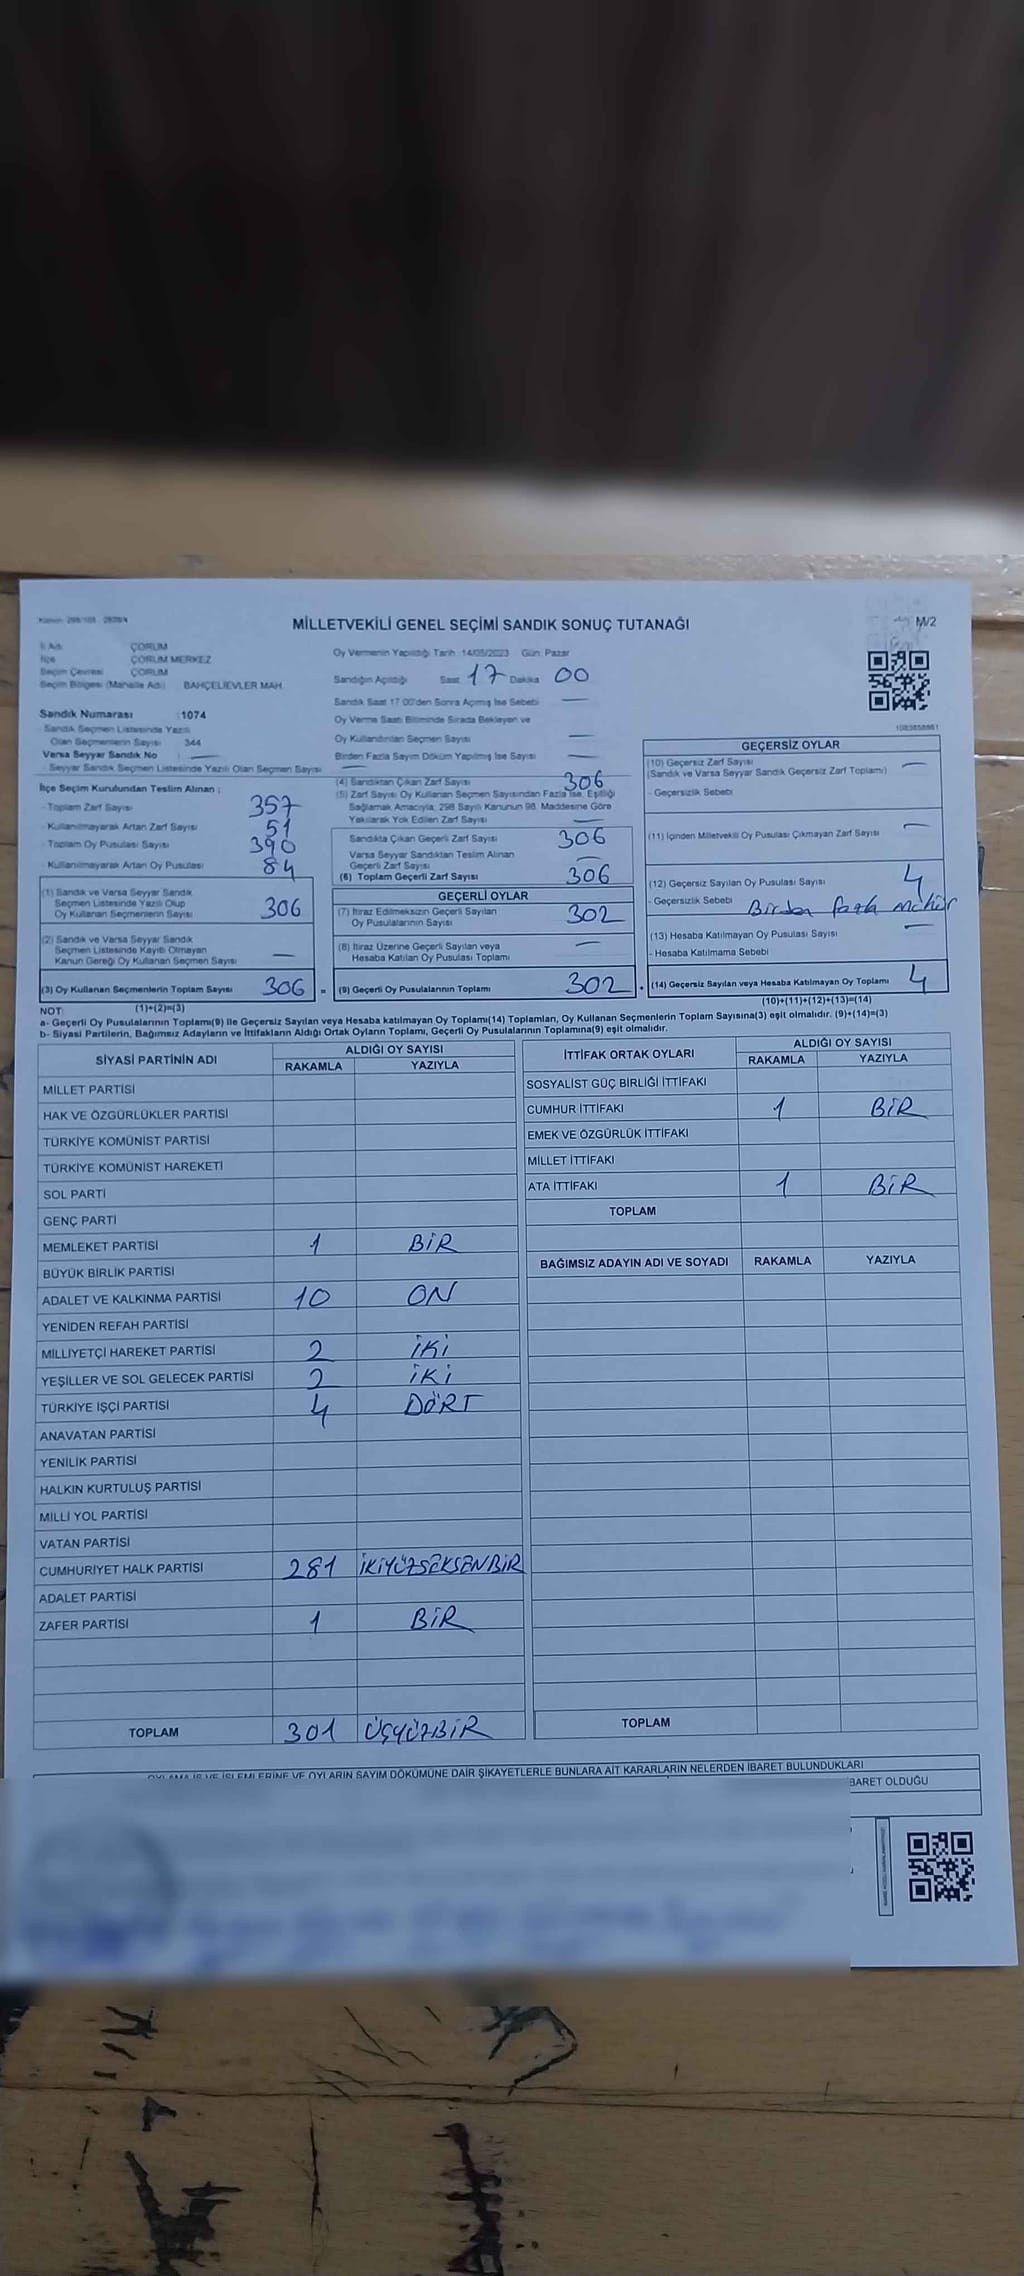 MİLLETVEKİLİ GENEL SEÇİMİ SANDIK SONUÇ TUTANAĞI
M/2
İl Adı ÇORUM
İlçe ÇORUM MERKEZ
Seçim Çevresi ÇORUM
Seçim Bölgesi (Mahalle Adı) BAHÇELİEVLER MAH.
Sandık Numarası :1074
Sandık Seçmen Listesinde Yazılı
Olan Seçmenlerin Sayısı 344
Varsa Seyyar Sandık No : —
Seyyar Sandık Seçmen Listesinde Yazılı Olan Seçmen Sayısı —
İlçe Seçim Kurulundan Teslim Alınan ;
- Toplam Zarf Sayısı 357
- Kullanılmayarak Artan Zarf Sayısı 51
- Toplam Oy Pusulası Sayısı 390
- Kullanılmayarak Artan Oy Pusulası 84
(1) Sandık ve Varsa Seyyar Sandık
Seçmen Listesinde Yazılı Olup
Oy Kullanan Seçmenlerin Sayısı 306
(2) Sandık ve Varsa Seyyar Sandık
Seçmen Listesinde Kayıtlı Olmayan
Kanun Gereği Oy Kullanan Seçmen Sayısı —
(3) Oy Kullanan Seçmenlerin Toplam Sayısı 306 =
(1)+(2)=(3)
Oy Vermenin Yapıldığı Tarih :14/05/2023 Gün: Pazar
Sandığın Açıldığı Saat 17 Dakika 00
Sandık Saat 17:00'den Sonra Açılmış İse Sebebi —
Oy Verme Saati Bitiminde Sırada Bekleyen ve
Oy Kullandırılan Seçmen Sayısı —
Birden Fazla Sayım Döküm Yapılmış İse Sayısı —
(4) Sandıktan Çıkan Zarf Sayısı 306
(5) Zarf Sayısı Oy Kullanan Seçmen Sayısından Fazla İse, Eşitliği
Sağlamak Amacıyla, 298 Sayılı Kanunun 98. Maddesine Göre
Yakılarak Yok Edilen Zarf Sayısı —
Sandıkta Çıkan Geçerli Zarf Sayısı 306
Varsa Seyyar Sandıktan Teslim Alınan
Geçerli Zarf Sayısı —
(6) Toplam Geçerli Zarf Sayısı 306
GEÇERLİ OYLAR
(7) İtiraz Edilmeksizin Geçerli Sayılan
Oy Pusulalarının Sayısı 302
(8) İtiraz Üzerine Geçerli Sayılan veya
Hesaba Katılan Oy Pusulası Toplamı —
(9) Geçerli Oy Pusulalarının Toplamı 302
GEÇERSİZ OYLAR
(10) Geçersiz Zarf Sayısı —
(Sandık ve Varsa Seyyar Sandık Geçersiz Zarf Toplamı)
- Geçersizlik Sebebi
(11) İçinden Milletvekili Oy Pusulası Çıkmayan Zarf Sayısı —
(12) Geçersiz Sayılan Oy Pusulası Sayısı 4
- Geçersizlik Sebebi Birden fazla mühür
(13) Hesaba Katılmayan Oy Pusulası Sayısı —
- Hesaba Katılmama Sebebi
(14) Geçersiz Sayılan veya Hesaba Katılmayan Oy Toplamı 4
(10)+(11)+(12)+(13)=(14)
NOT:
a- Geçerli Oy Pusulalarının Toplamı(9) ile Geçersiz Sayılan veya Hesaba katılmayan Oy Toplamı(14) Toplamları, Oy Kullanan Seçmenlerin Toplam Sayısına(3) eşit olmalıdır. (9)+(14)=(3)
b- Siyasi Partilerin, Bağımsız Adayların ve İttifakların Aldığı Ortak Oyların Toplamı, Geçerli Oy Pusulalarının Toplamına(9) eşit olmalıdır.
SİYASİ PARTİNİN ADI ALDIĞI OY SAYISI
RAKAMLA YAZIYLA
MİLLET PARTİSİ
HAK VE ÖZGÜRLÜKLER PARTİSİ
TÜRKİYE KOMÜNİST PARTİSİ
TÜRKİYE KOMÜNİST HAREKETİ
SOL PARTİ
GENÇ PARTİ
MEMLEKET PARTİSİ 1 BİR
BÜYÜK BİRLİK PARTİSİ
ADALET VE KALKINMA PARTİSİ 10 ON
YENİDEN REFAH PARTİSİ
MİLLİYETÇİ HAREKET PARTİSİ 2 İKİ
YEŞİLLER VE SOL GELECEK PARTİSİ 2 İKİ
TÜRKİYE İŞÇİ PARTİSİ 4 DÖRT
ANAVATAN PARTİSİ
YENİLİK PARTİSİ
HALKIN KURTULUŞ PARTİSİ
MİLLİ YOL PARTİSİ
VATAN PARTİSİ
CUMHURİYET HALK PARTİSİ 281 İKİYÜZSEKSENBİR
ADALET PARTİSİ
ZAFER PARTİSİ 1 BİR
TOPLAM 301 ÜÇYÜZBİR
İTTİFAK ORTAK OYLARI ALDIĞI OY SAYISI
RAKAMLA YAZIYLA
SOSYALİST GÜÇ BİRLİĞİ İTTİFAKI
CUMHUR İTTİFAKI 1 BİR
EMEK VE ÖZGÜRLÜK İTTİFAKI
MİLLET İTTİFAKI
ATA İTTİFAKI 1 BİR
TOPLAM
BAĞIMSIZ ADAYIN ADI VE SOYADI RAKAMLA YAZIYLA
TOPLAM
OYLAMA İŞ VE İŞLEMLERİNE VE OYLARIN SAYIM DÖKÜMÜNE DAİR ŞİKAYETLERLE BUNLARA AİT KARARLARIN NELERDEN İBARET BULUNDUKLARI
BARET OLDUĞU